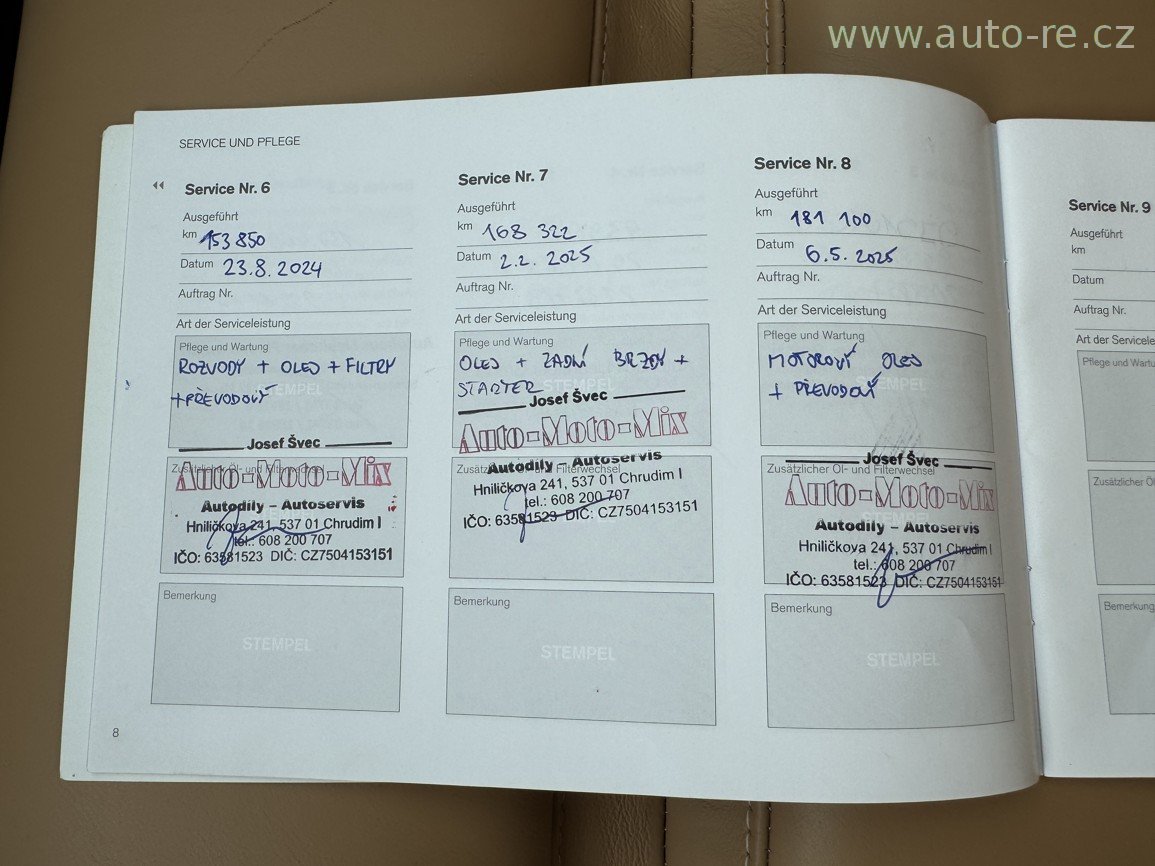 www.auto-re.cz
SERVICE UND PFLEGE
Service Nr. 6
Ausgeführt
km 153 850
Datum 23.8. 2024
Auftrag Nr.
Art der Serviceleistung
Pflege und Wartung
ROZVODY + OLEJ + FILTRY
+ PŘEVODOVÝ
STEMPEL
Josef Švec
Zusätzlicher Öl- und Filterwechsel
Auto-Moto-Mix
Autodily – Autoservis
Hniličkova 241, 537 01 Chrudim I
tel.: 608 200 707
IČO: 63581523 DIČ: CZ7504153151
Bemerkung
STEMPEL
8
Service Nr. 7
Ausgeführt
km 168 322
Datum 2.2. 2025
Auftrag Nr.
Art der Serviceleistung
Pflege und Wartung
OLEJ + ZADNÍ BRZDY +
STARTER
STEMPEL
Josef Švec
Auto-Moto-Mix
Zusätzlicher Öl- und Filterwechsel
Autodily – Autoservis
Hniličkova 241, 537 01 Chrudim I
tel.: 608 200 707
IČO: 63581523 DIČ: CZ7504153151
Bemerkung
STEMPEL
Service Nr. 8
Ausgeführt
km 181 100
Datum 6.5. 2025
Auftrag Nr.
Art der Serviceleistung
Pflege und Wartung
MOTOROVÝ OLEJ
+ PŘEVODOVÝ
Josef Švec
Zusätzlicher Öl- und Filterwechsel
Auto-Moto-Mix
Autodily – Autoservis
Hniličkova 241, 537 01 Chrudim I
tel.: 608 200 707
IČO: 63581523 DIČ: CZ7504153151
Bemerkung
STEMPEL
Service Nr. 9
Ausgeführt
km
Datum
Auftrag Nr.
Art der Service
Pflege und Wartu
Zusätzlicher Öl
Bemerkung